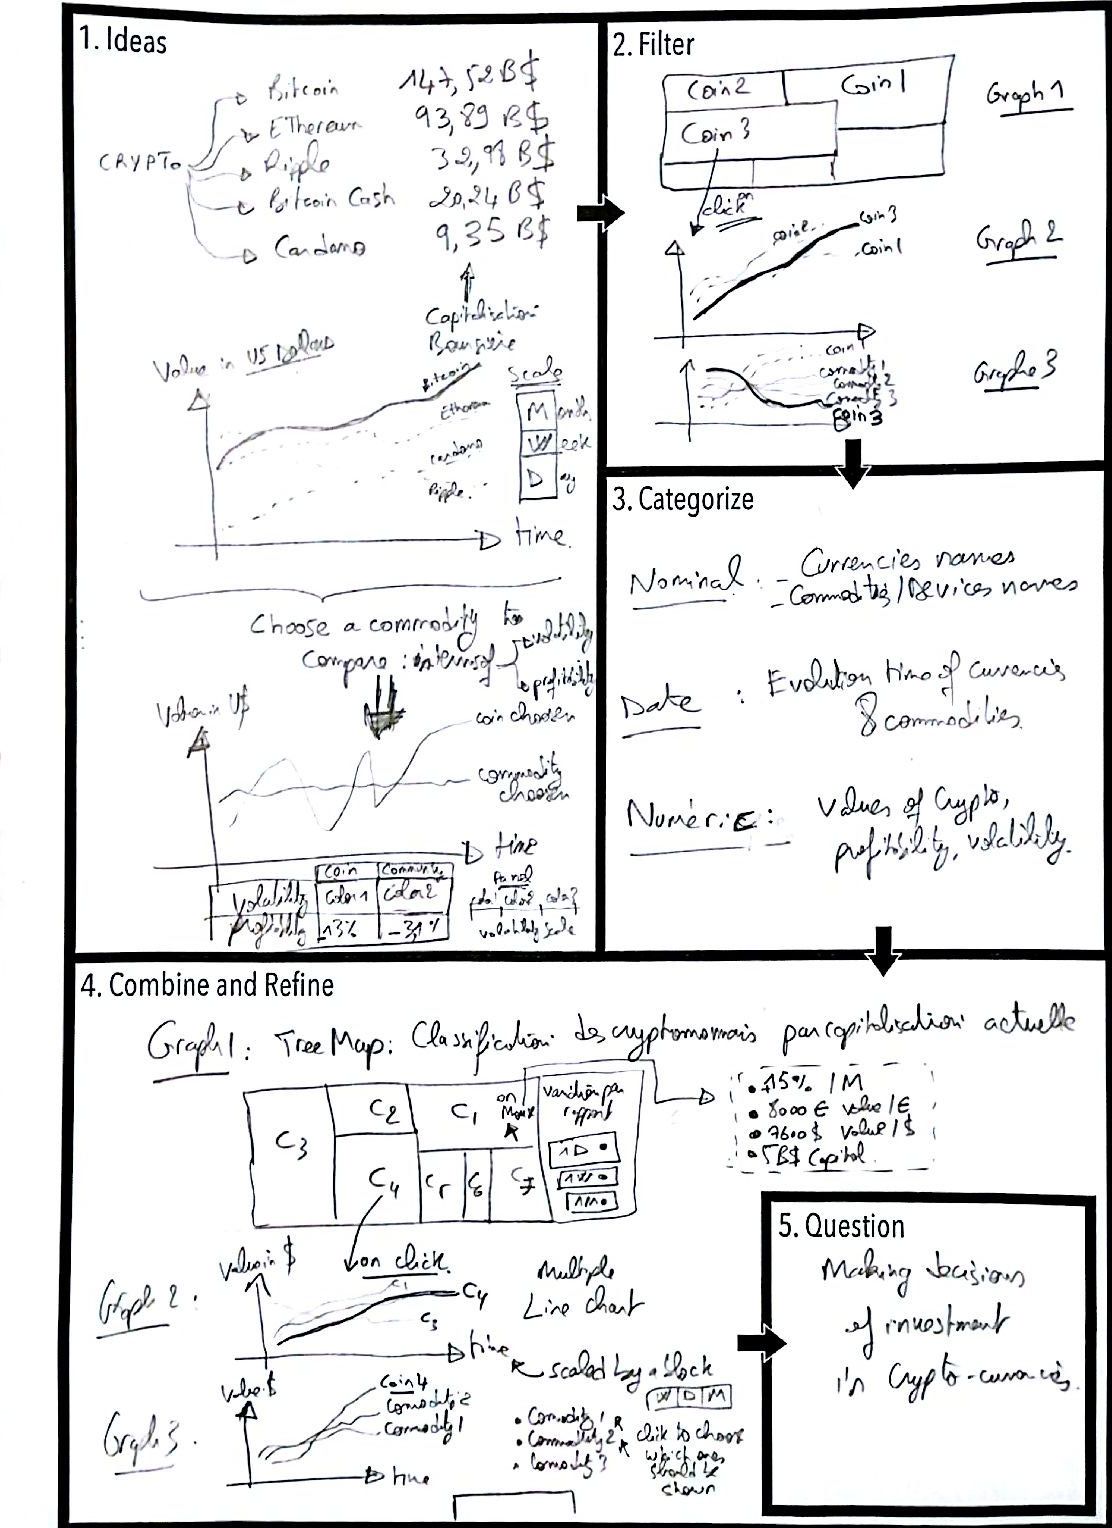 1. Ideas
CRYPTO
Bitcoin 147,52 B$
EThereum 93,89 B$
Ripple 32,98 B$
Bitcoin Cash 20,24 B$
Cardano 9,35 B$
Capitalisation
Boursière
Value in US Dollars
Bitcoin
Ethereum
Cardano
Ripple
Scale
Month
Week
Day
time
Choose a commodity to
Compare : in terms of
volatility
profitability
Value in U$
coin choosen
commodity
choosen
time
Coin
volatility color1 color2
profitability 13% -31%
Panel
color1 color2 color3
volatility scale
2. Filter
Coin2 Coin1
Coin3
Graph 1
click on
coin2 coin3
coin1
Graph 2
coin1
commodity 1
commodity 2
commodity 3
Coin3
Graphe 3
3. Categorize
Nominal : - Currencies names
- Commodities / Devices names
Date : Evolution time of currencies
& commodities.
Numeric : Values of Crypto,
profitability, volatility.
4. Combine and Refine
Graph1 : TreeMap : Classification des cryptomonnais par capitalisation actuelle
C3 C2 C1
on
Mouse
C4 C5 C6 C7
variation par
rapport
1D
1W
1M
+15% / M
8000 € value / €
7600 $ value / $
5B$ Capital
on click
Graph 2 :
Value in $
C1
C4
C3
time
Multiple
Line chart
scaled by a block
W D M
Graph 3 .
Value $
Coin4
Commodity 2
Commodity 1
time
Commodity 1
Commodity 2
Commodity 3
click to choose
which ones
should be
shown
5. Question
Making decisions
of investment
in Crypto-currencies.